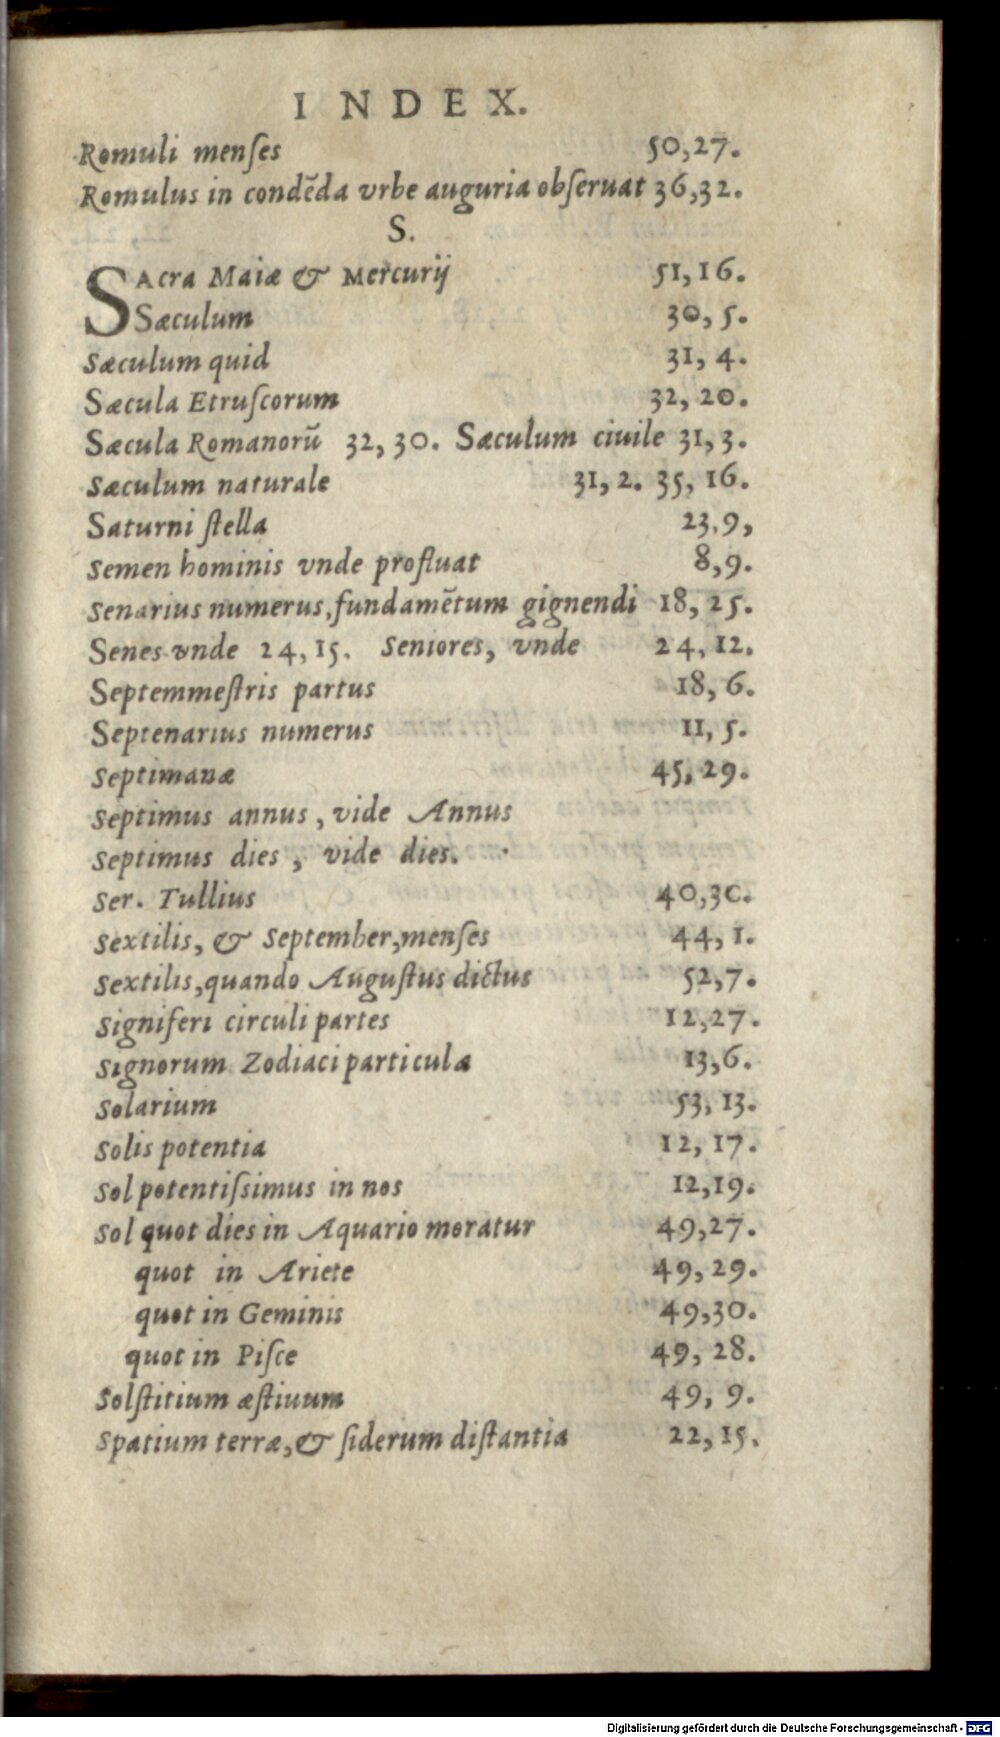 INDEX.
Romuli menſes 50,27.
Romulus in condēda vrbe auguria obſeruat 36,32.
S.
SAcra Maiæ & Mercurij 51,16.
Sæculum 30, 5.
Sæculum quid 31, 4.
Sæcula Etruſcorum 32, 20.
Sæcula Romanorū 32, 30. Sæculum ciuile 31, 3.
Sæculum naturale 31, 2. 35, 16.
Saturni ſtella 23,9,
Semen hominis vnde profluat 8,9.
Senarius numerus,fundamētum gignendi 18, 25.
Senes vnde 24, 15. Seniores, vnde 24, 12.
Septemmeſtris partus 18, 6.
Septenarius numerus 11, 5.
Septimanæ 45, 29.
Septimus annus, vide Annus
Septimus dies, vide dies.
Ser. Tullius 40,30.
Sextilis, & September,menſes 44, 1.
Sextilis,quando Auguſtus dictus 52,7.
Signiferi circuli partes 12,27.
Signorum Zodiaci particulæ 13,6.
Solarium 53, 13.
Solis potentia 12, 17.
Sol potentiſsimus in nos 12,19.
Sol quot dies in Aquario moratur 49,27.
quot in Ariete 49, 29.
quot in Geminis 49,30.
quot in Piſce 49, 28.
Solſtitium æſtiuum 49, 9.
Spatium terræ,& ſiderum diſtantia 22, 15.
Digitalisierung gefördert durch die Deutsche Forschungsgemeinschaft - DFG